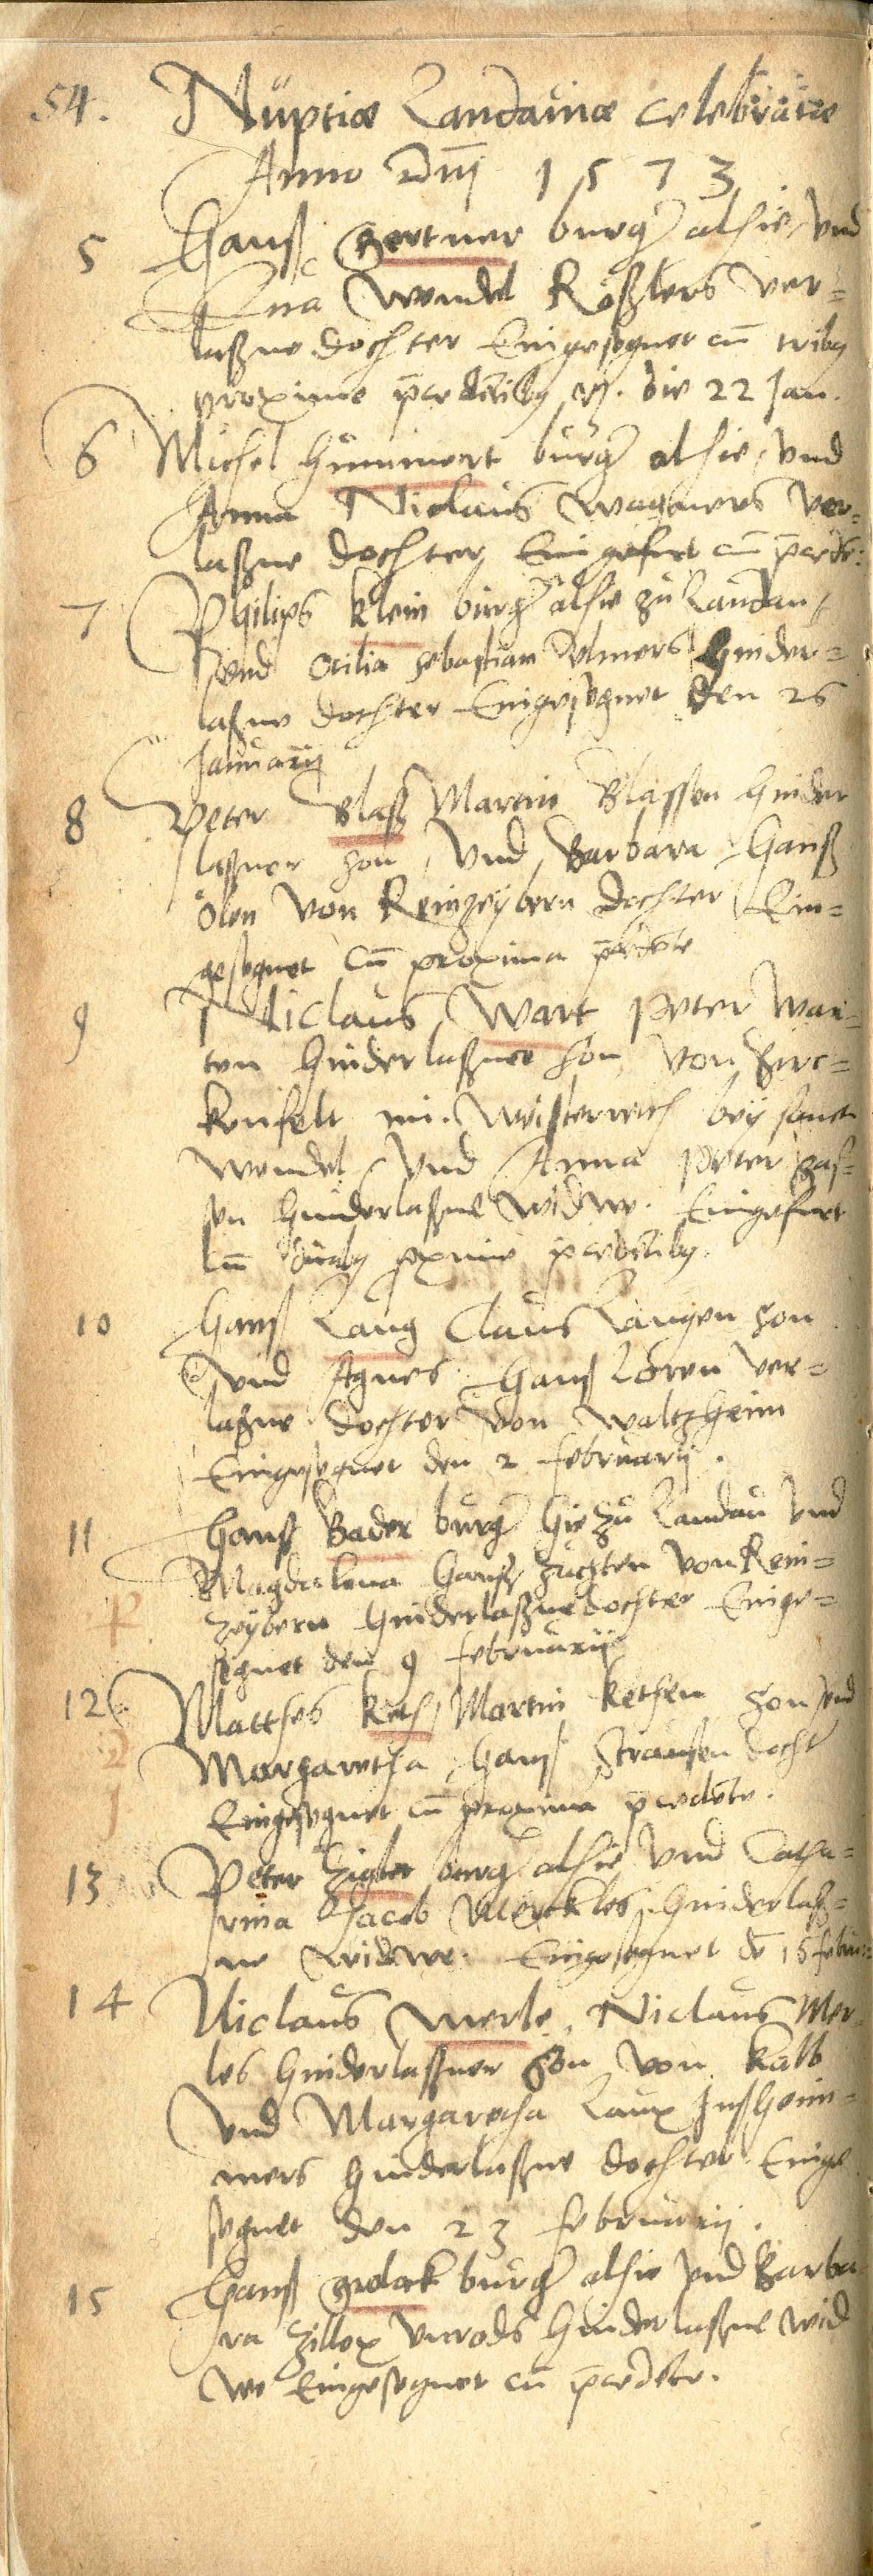 54. Nuptiæ Landauinæ celebratæ
Anno Dnj 1573
5 Hanß Gertner burger alhie, und
Eua Wendel Rößlers ver=
laßne dochter Eingesegnet cū tribus
proxime p̄cedētibus die 22 Jan.
6 Michel Hummert burger alhie, und
Anna Niclaus Wagners ver=
laßne dochter Eingefurt cū p̄cedē:
7 Philips Klein burger alhie zu Landau,
und Otilia Sebastian Ulmers Hinder=
laßne dochter Eingesegnet den 26
Januarij
8 Peter Blaß Martin Blassen hinder
laßner son, und Barbara Hanß
Ölen von Reinzeybern dochter Ein=
gesegnet cū proxima p̄cedēte
9 Niclaus Wart Peter War=
ten hinderlaßner son von Birc=
kenfelt im Westerreich bey sanct
Wendel, und Anna Peter
sen hinderlaßne widwe. Eingefurt
cū duabus proxime p̄cedētibus.
10 Hanß Lang Claus Langen son
und Agnes Hanß Lören ver=
laßne dochter von Waltzheim
Eingesegnet den 2 februarij.
11 Hanß Bader burger hie zu Landau und
Magdalena Hanß Züchten von Rein=
zeybern hinderlaßne dochter Einge=
segnet den 9 februarij
12 Matthes Keth, Martin Kethen son und
Margaretha Hanß Straussen docht
Eingesegnet cū proxima p̄cedēte.
13 Peter Zigler burger alhie und Catha=
rina Jacob Merckles hinderlaß=
ne widwe. Eingesegnet dē 16 febru:
14 Niclaus Merle, Niclaus Mer=
les hinderlaßner son von Kalb
und Margaretha Laux Insheim=
mers hinderlaßne dochter Einge
segnet den 23 februarij.
15 Hanß Grolock burger alhie und Barba
ra Zillox Unrods hinderlaßne wid
we Eingesegnet cū p̄cedēte.